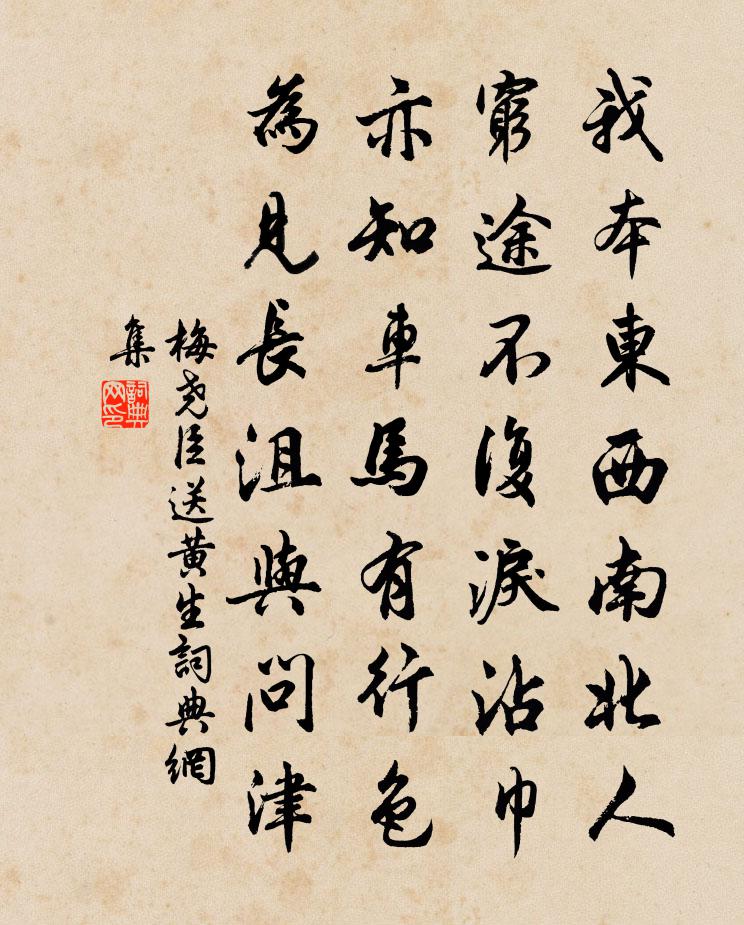 我本東西南北人
窮途不復淚沾巾
亦知車馬有行色
為見長沮與問津
梅尧臣送黃生詞典網
集
詞典
网印